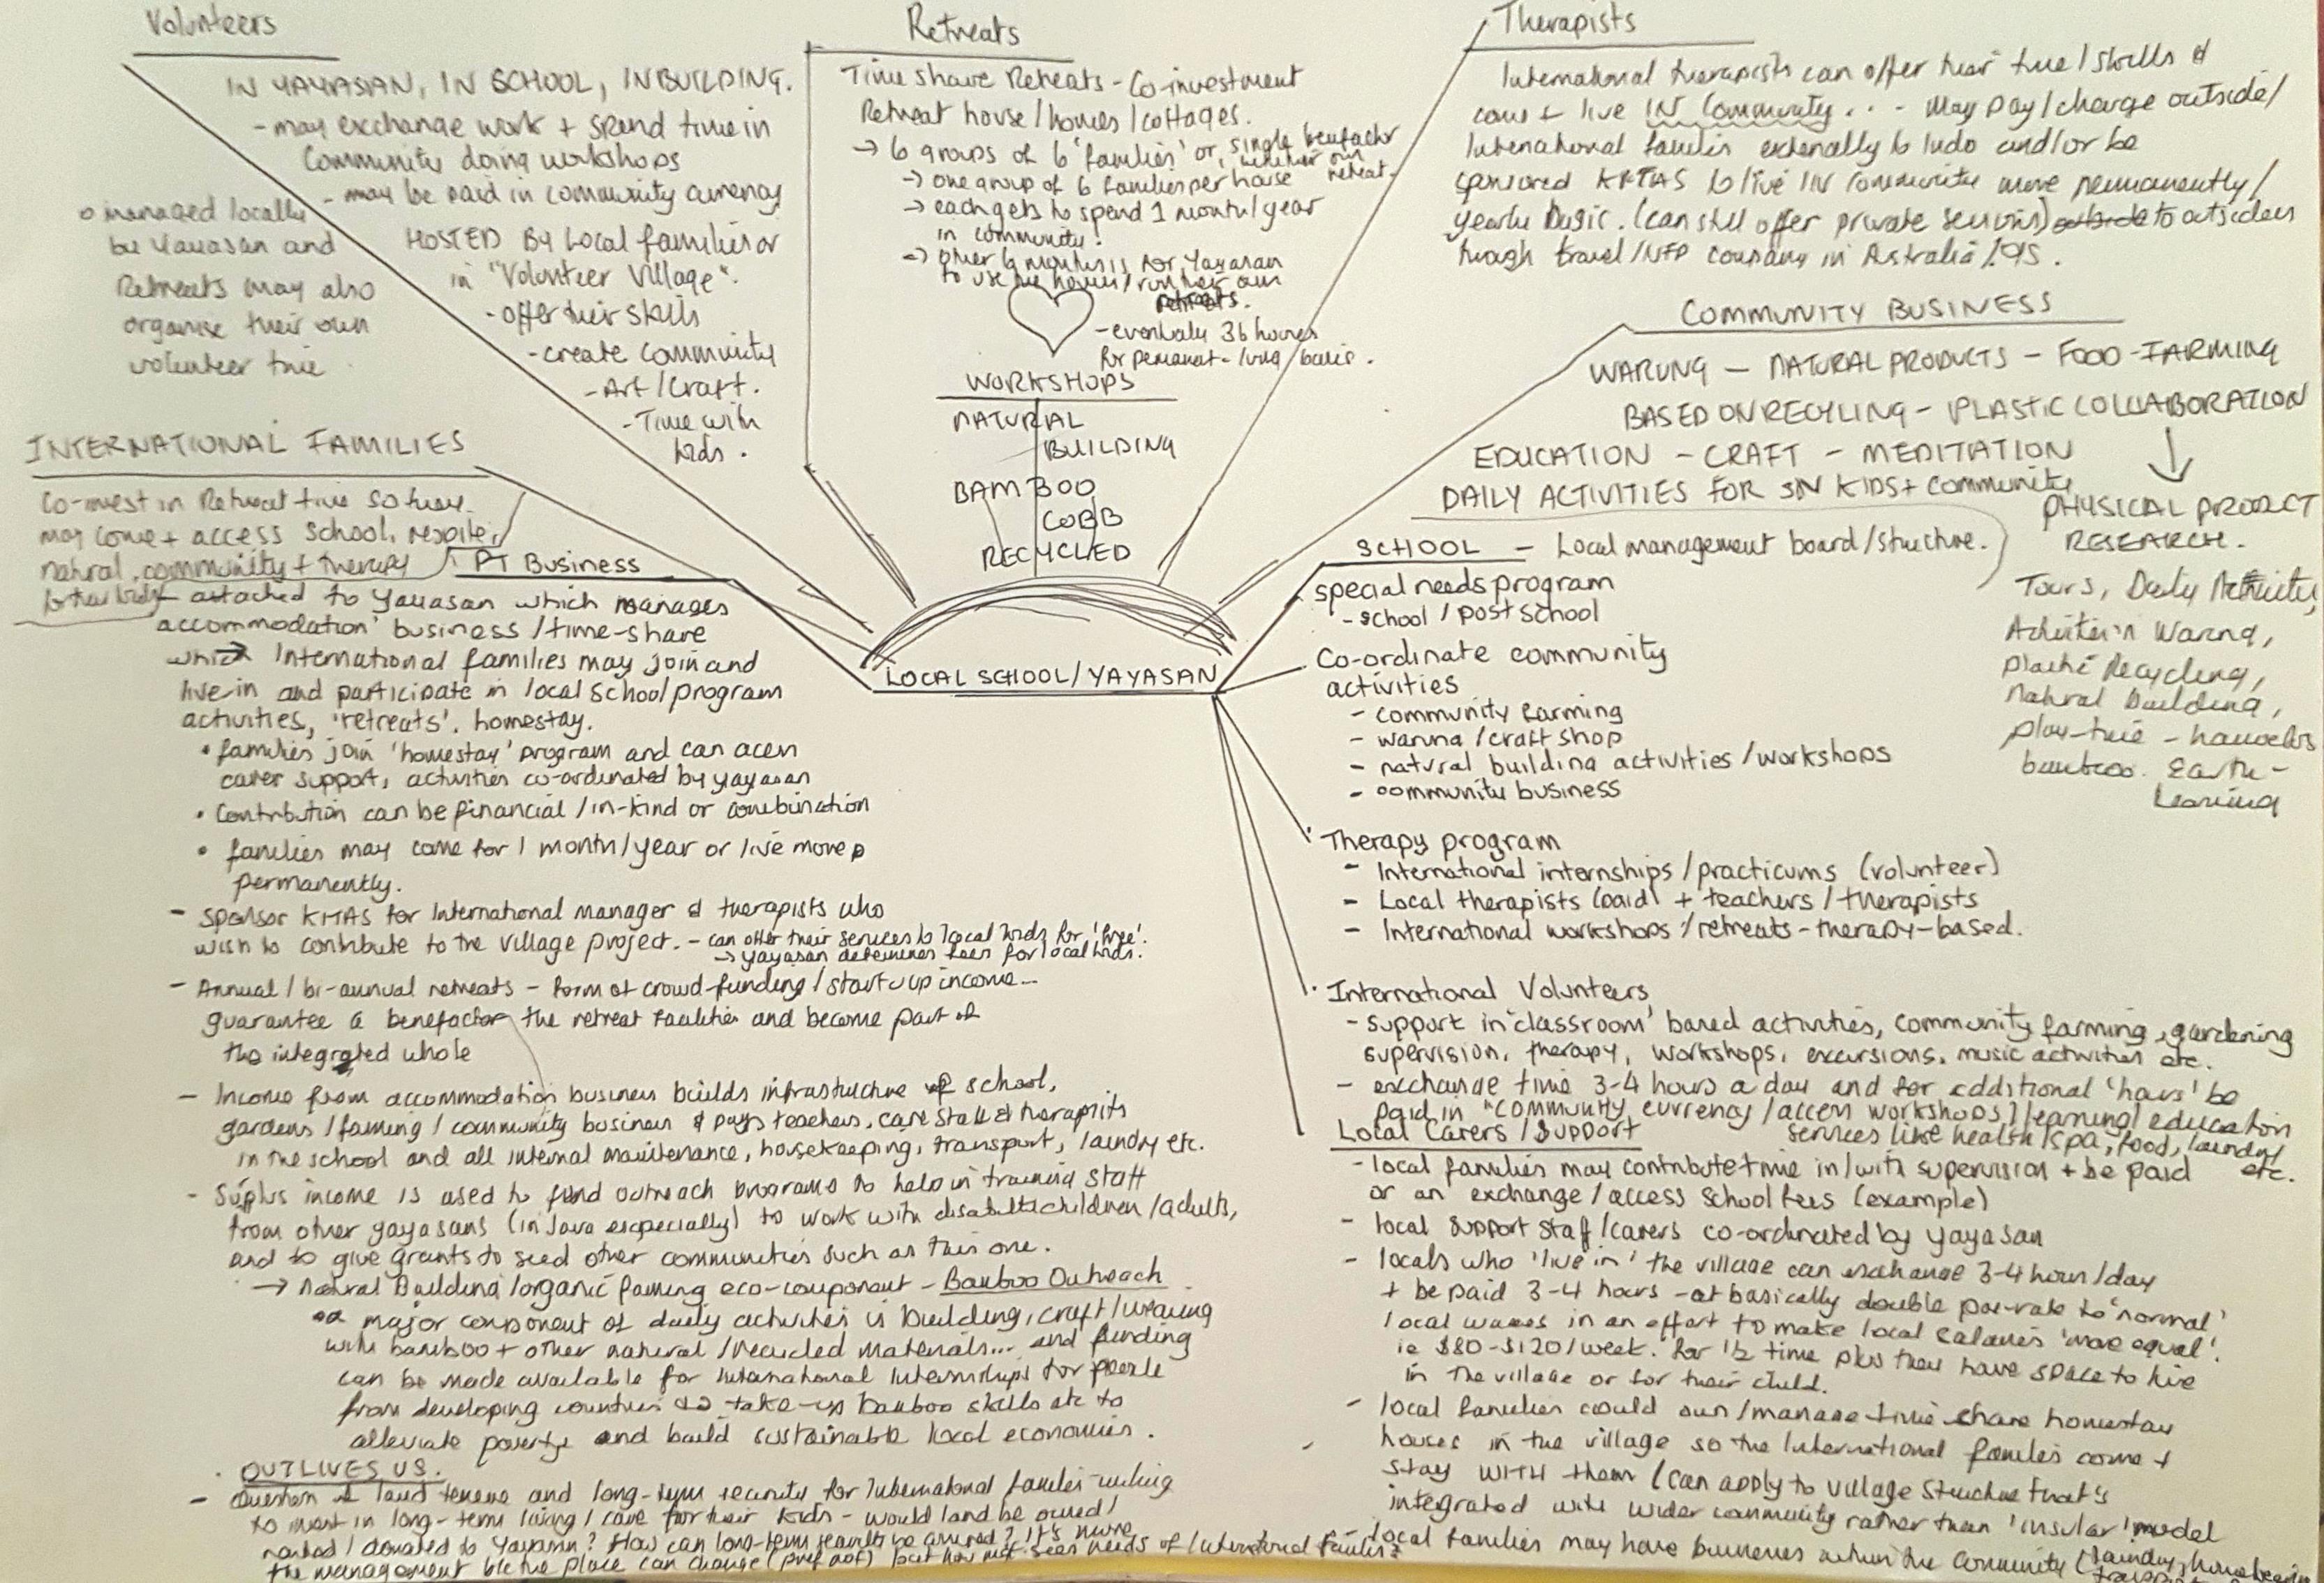 Volunteers
IN YAYASAN, IN SCHOOL, IN BUILDING.
- may exchange work + spend time in
Community doing workshops
- may be paid in community currency
HOSTED By Local families or
in "Volunteer Village".
- offer their skills
- create community
- Art/Craft.
- Time with
kids.
o managed locally
by Yayasan and
Retreats may also
organise their own
volunteer time
Retreats
Time share Retreats - Co-investment
Retreat house/homes/cottages.
→ 6 groups of 6 'families' or single benefactor
retreat.
→ one group of 6 families per house
→ each gets to spend 1 month/year
in community.
→ other 6 months is for Yayasan
to use the houses/run their own
retreats.
- eventually 36 houses
for permanent-living/basis.
WORKSHOPS
NATURAL
BUILDING
BAMBOO
COBB
RECYCLED
Therapists
International therapists can offer their time/skills &
come + live IN Community... - May pay/charge outside/
International families externally to Indo and/or be
sponsored KITAS to live IN Community more permanently/
yearly basis. (can still offer private services) outside to outsiders
through travel/NFP company in Australia/US.
COMMUNITY BUSINESS
WARUNG - NATURAL PRODUCTS - FOOD - FARMING
BASED ON RECYLING - PLASTIC COLLABORATION
↓
PHYSICAL PRODUCT
RESEARCH.
EDUCATION - CRAFT - MEDITATION
DAILY ACTIVITIES FOR SN KIDS + Community
Tours, Daily Activity,
Warung,
Plastic Recycling,
Natural Building,
play-time -
bamboo. Earth-
Learning
INTERNATIONAL FAMILIES
Co-invest in Retreat time so they
may come + access school, respite,
natural, community + therapy
for their kids
PT Business
- attached to Yayasan which manages
'accommodation' business/time-share
which International families may join and
live in and participate in local school program
activities, 'retreats', homestay.
• families join 'homestay' program and can access
carer support, activities co-ordinated by yayasan
• Contribution can be financial/in-kind or combination
• families may come for 1 month/year or live more
permanently.
- sponsor KITAS for International manager & therapists who
wish to contribute to the village project. - can offer their services to local kids for 'free'.
→ yayasan determines fees for local kids.
- Annual/bi-annual retreats - form of crowd-funding/start-up income...
guarantee a benefactor the retreat facilities and become part of
the integrated whole
- Income from accommodation business builds infrastructure of school,
gardens/farming/community business & pays teachers, care staff & therapists
in the school and all internal maintenance, housekeeping, transport, laundry etc.
- Suplus income is used to fund outreach programs to help in training staff
from other yayasans (in Java especially) to work with disabilities children/adults,
and to give grants to seed other communities such as this one.
→ Natural Building/organic farming eco-component - Bamboo Outreach
a major component of daily activities is building, craft/weaving
with bamboo + other natural/recycled materials... and funding
can be made available for International Internships for people
from developing countries to take-up bamboo skills etc to
alleviate poverty and build sustainable local economies.
OUTLIVES US.
- Question of land tenure and long-term security for International families wishing
to invest in long-term living/care for their kids - would land be owned/
rented/donated to Yayasan? How can long-term security be assured? It's more
the management b/c the place can change (pref not) but how meet needs of International families?
LOCAL SCHOOL/YAYASAN
SCHOOL - Local management board/structure.
special needs program
- school/post school
Co-ordinate community
activities
- community farming
- warung/craft shop
- natural building activities/workshops
- community business
Therapy program
- International internships/practicums (volunteer)
- Local therapists (paid) + teachers/therapists
- International workshops/retreats - therapy-based.
International Volunteers
- support in 'classroom' based activities, community farming, gardening
supervision, therapy, workshops, excursions, music activities etc.
- exchange time 3-4 hours a day and for additional 'hours' be
paid in "community currency/access workshops/learning/education
services like health/spa, food, laundry
etc.
Local Carers/Support
- local families may contribute time in/with supervision + be paid
or an exchange/access school fees (example)
- local support staff/carers co-ordinated by yayasan
- locals who 'live in' the village can exchange 3-4 hour/day
+ be paid 3-4 hours - at basically double pay-rate to 'normal'
local wages in an effort to make local salaries 'more equal'.
ie $80-$120/week. for 1/2 time plus they have space to live
in the village or for their child.
- local families could own/manage time share homestay
houses in the village so the International families come +
stay WITH them (can apply to village structure that's
integrated with wider community rather than 'insular' model
- local families may have businesses within the community (laundry, housekeeping